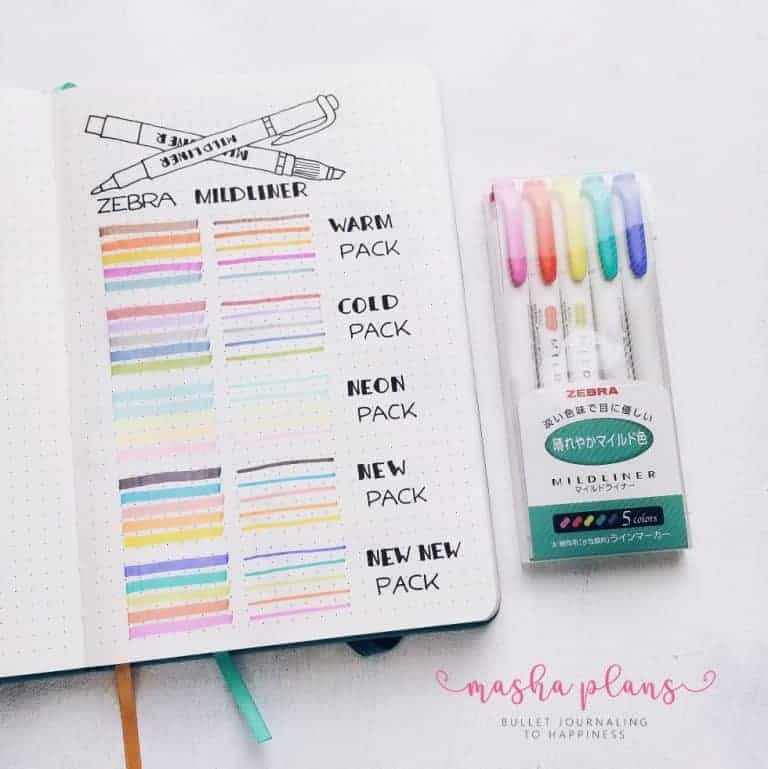 MILDLINER
ZEBRA MILDLINER
WARM
PACK
COLD
PACK
NEON
PACK
NEW
PACK
NEW NEW
PACK
ZEBRA
淡い色味で目に優しい
晴れやかマイルド色
MILDLINER
マイルドライナー
5 colors
ラインマーカー
masha plans
BULLET JOURNALING
TO HAPPINESS